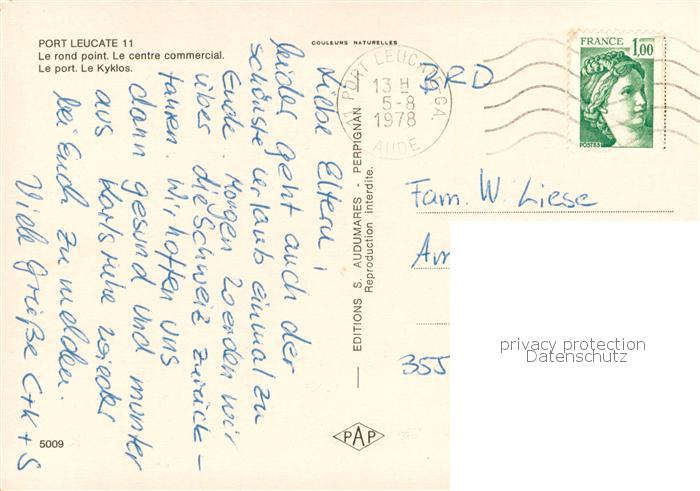 PORT LEUCATE 11
Le rond point. Le centre commercial.
Le port. Le Kyklos.
COULEURS NATURELLES
Liebe Eltern,
leider geht auch der
schönste Urlaub einmal zu
Ende. Morgen werden wir
über die Schweiz zurück-
fahren. Wir hoffen uns
dann gesund und munter
aus Karlsruhe wieder
bei Euch zu melden.
Viele Grüße C+K+S
5009
EDITIONS S. AUDUMARES - PERPIGNAN
Reproduction interdite.
PAP
11 PORT LEUCATE
13 H
5-8
1978
AUDE
FRANCE 1,00
POSTES
BRD
Fam. W. Liese
Am
355
privacy protection
Datenschutz